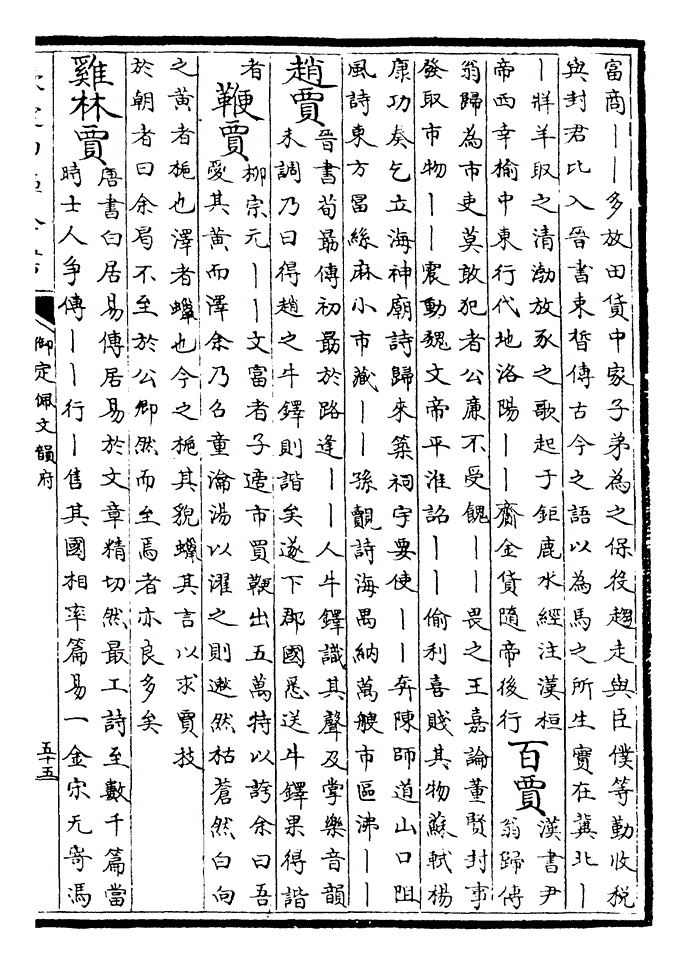 富商——多放田貨中家子弟為之保役趨走與臣僕等勤收税
與封君比入晉書束晳傳古今之語以為馬之所生實在冀北—
—牂羊取之清渤放豕之歌起于鉅鹿水經注漢桓
帝西幸榆中東行代地洛陽——齎金貨隨帝後行
百賈
漢書尹
翁歸傳
翁歸為市吏莫敢犯者公廉不受餽——畏之王嘉論董賢封事
發取市物——震動魏文帝平淮詔——偷利喜賤其物蘇軾楊
康功奏乞立海神廟詩歸來築祠宇要使——奔陳師道山口阻
風詩東方畱絲麻小市藏——孫覿詩海禺納萬艘市區沸——
趙賈
晉書荀朂傳初朂於路逢——人牛鐸識其聲及掌樂音韻
未調乃曰得趙之牛鐸則諧矣遂下郡國悉送牛鐸果得諧
者
鞭賈
柳宗元——文富者子適市買鞭出五萬特以誇余曰吾
愛其黄而澤余乃召童瀹湯以濯之則遬然枯蒼然白向
之黄者梔也澤者蠟也今之梔其貌蠟其言以求賈技
於朝者曰余曷不至於公卿然而至焉者亦良多矣
雞林賈
唐書白居易傳居易於文章精切然最工詩至數千篇當
時士人争傳——行—售其國相率篇易一金宋无寄馮
御定佩文韻府
五十五